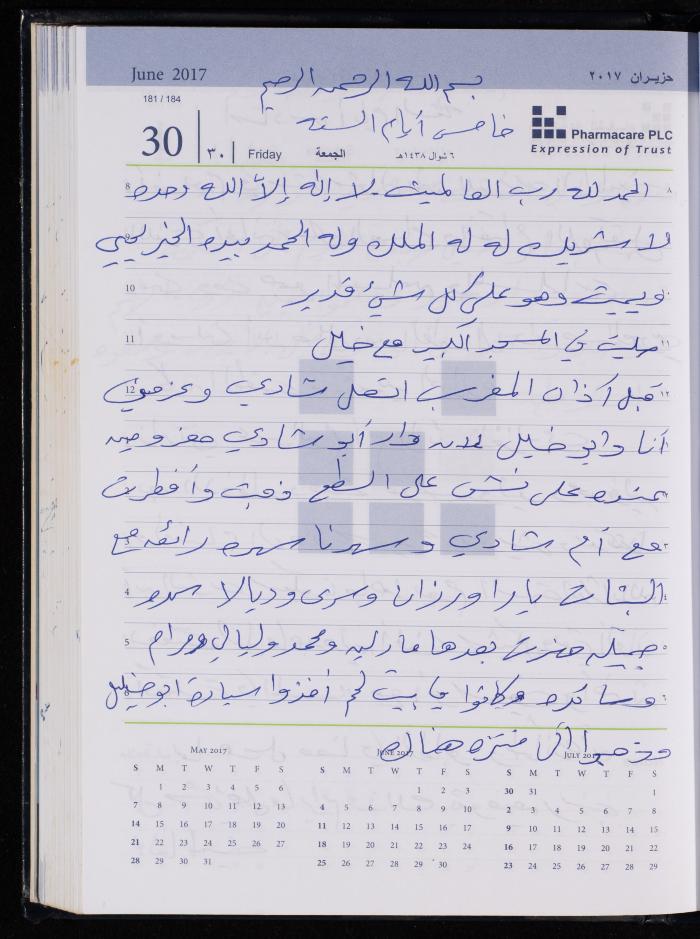 June 2017
بسم الله الرحمن الرحيم
حزيران ٢٠١٧
181 / 184
خامس أيام الستة
30
٣٠
Friday
الجمعة
٦ شوال ١٤٣٨هـ
Pharmacare PLC
Expression of Trust
8 الحمد لله رب العالمين. لا إله إلاّ الله وحده ٨
لا شريك له له الملك وله الحمد بيده الخير يحيي
10 ويميت وهو على كل شيء قدير
11 صليت في المسجد الكبير مع خليل ١١
12 قبل آذان المغرب اتصل شادي وعزمني ١٢
أنا وابو خليل لانه دار أبو شادي معزومين
عنده على نش على السطح ذهبت وأفطرت
مع أم شادي وسهرنا سهره رائعه مع
4 البنات يارا ورزان وسرى وديالا سهره ٤
5 جميله حضرت بعدها ماريه ومحمد وليالي ومرام ٥
وساندره وكانوا في بيت لحم أخذوا سيارة ابو خليل ٦
وذهبوا الى منتزه هناك
MAY 2017
S M T W T F S
1 2 3 4 5 6
7 8 9 10 11 12 13
14 15 16 17 18 19 20
21 22 23 24 25 26 27
28 29 30 31
JUNE 2017
S M T W T F S
1 2 3
4 5 6 7 8 9 10
11 12 13 14 15 16 17
18 19 20 21 22 23 24
25 26 27 28 29 30
JULY 2017
S M T W T F S
30 31 1
2 3 4 5 6 7 8
9 10 11 12 13 14 15
16 17 18 19 20 21 22
23 24 25 26 27 28 29